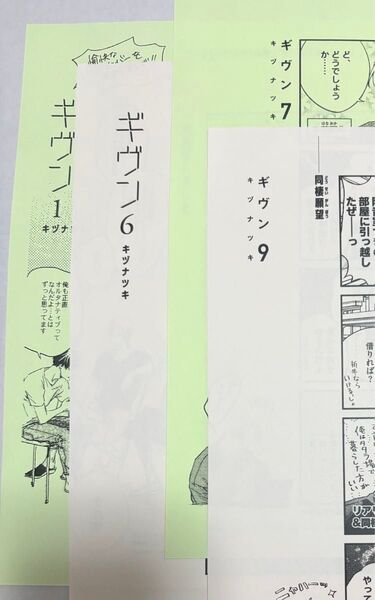 愉快な
ギヴン
1
キヅナ
俺も正直
オルタナティブって
なんだよ…とは
ずっと思ってます
ギヴン
6
キヅナツキ
ギヴン7
キヅナツキ
ど、
どうでしょう
か……
ギヴン9
キヅナツキ
同棲願望
どうせいがんぼう
部屋に引っ越し
たぜーっ
借りれば？
俺は
場で
暮らした方が
いい
リア
&同棲
やって